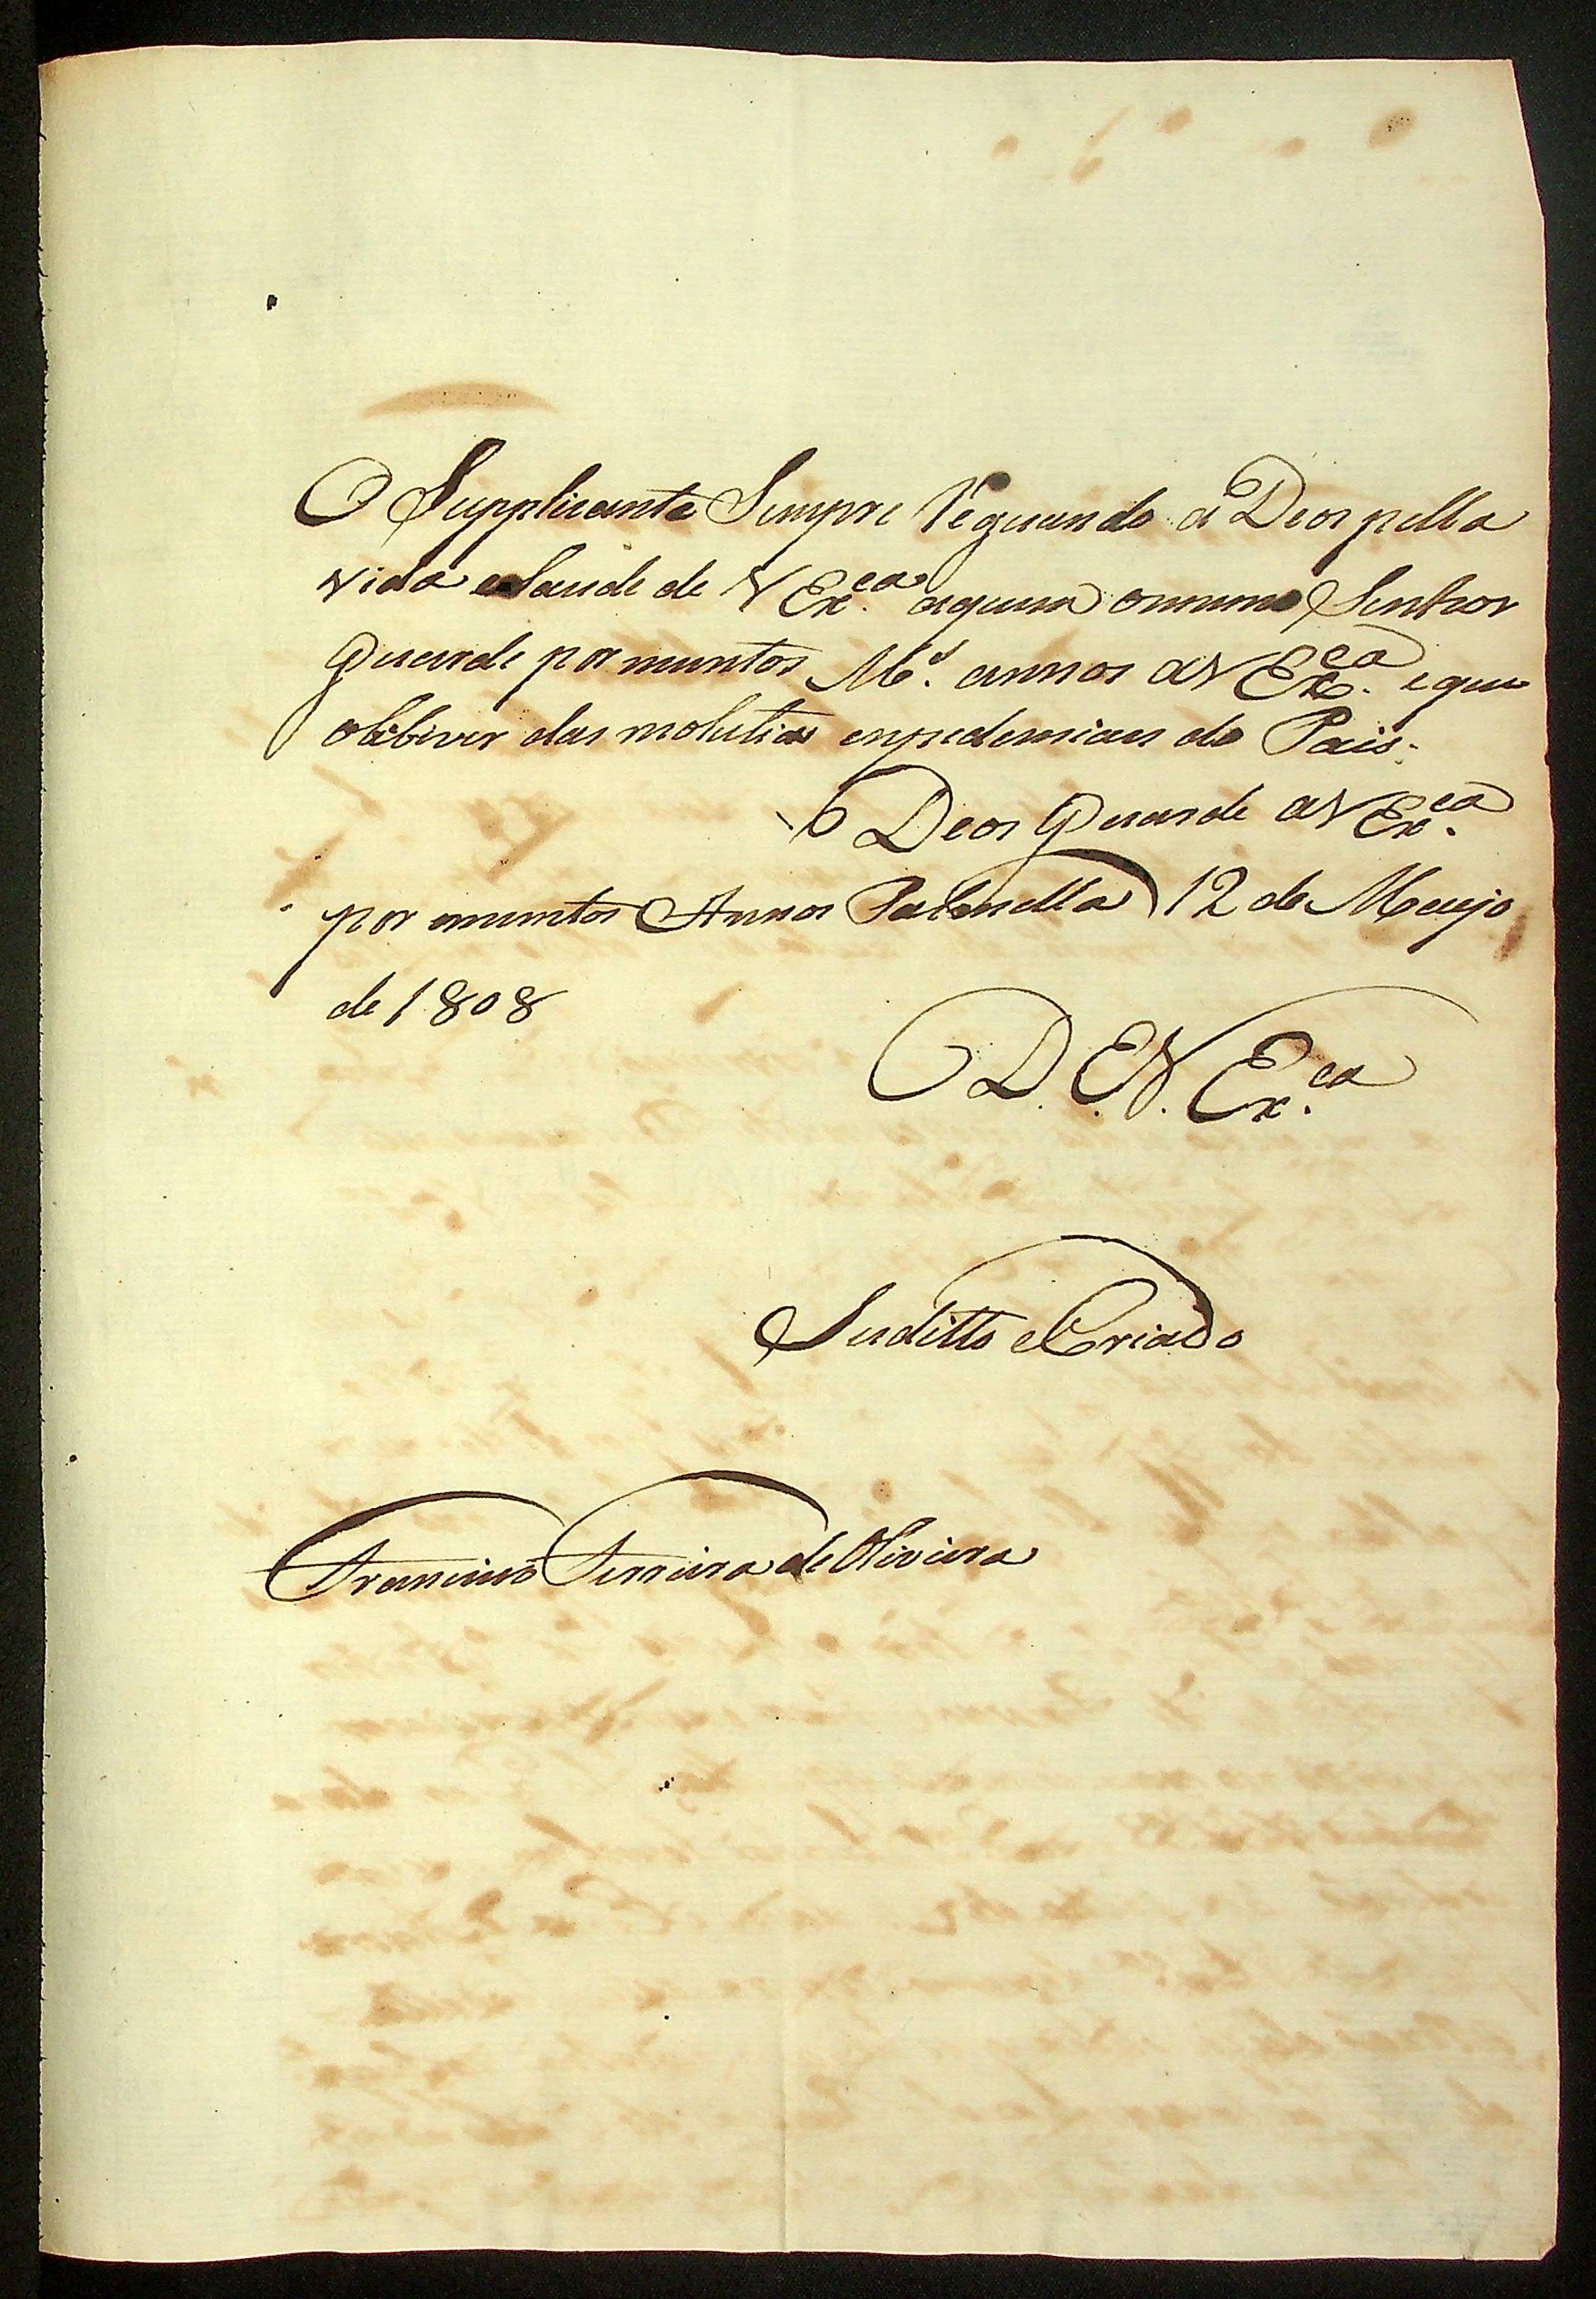 O Supplicante Sempre Reguando a Deos pella
vida e Saude de V Ex.ca aquem o mmo Senhor
Guarde por muntos Ms. annos a V Ex.ca e que
o libiver das molestias enpedemias do Pais.
Deos Guarde a V Ex.ca
por muntos Annos Palmella 12 de Mayo
de 1808
D. E. V. Ex.ca
Suditto e Criado
Francisco Ferreira de Oliveira